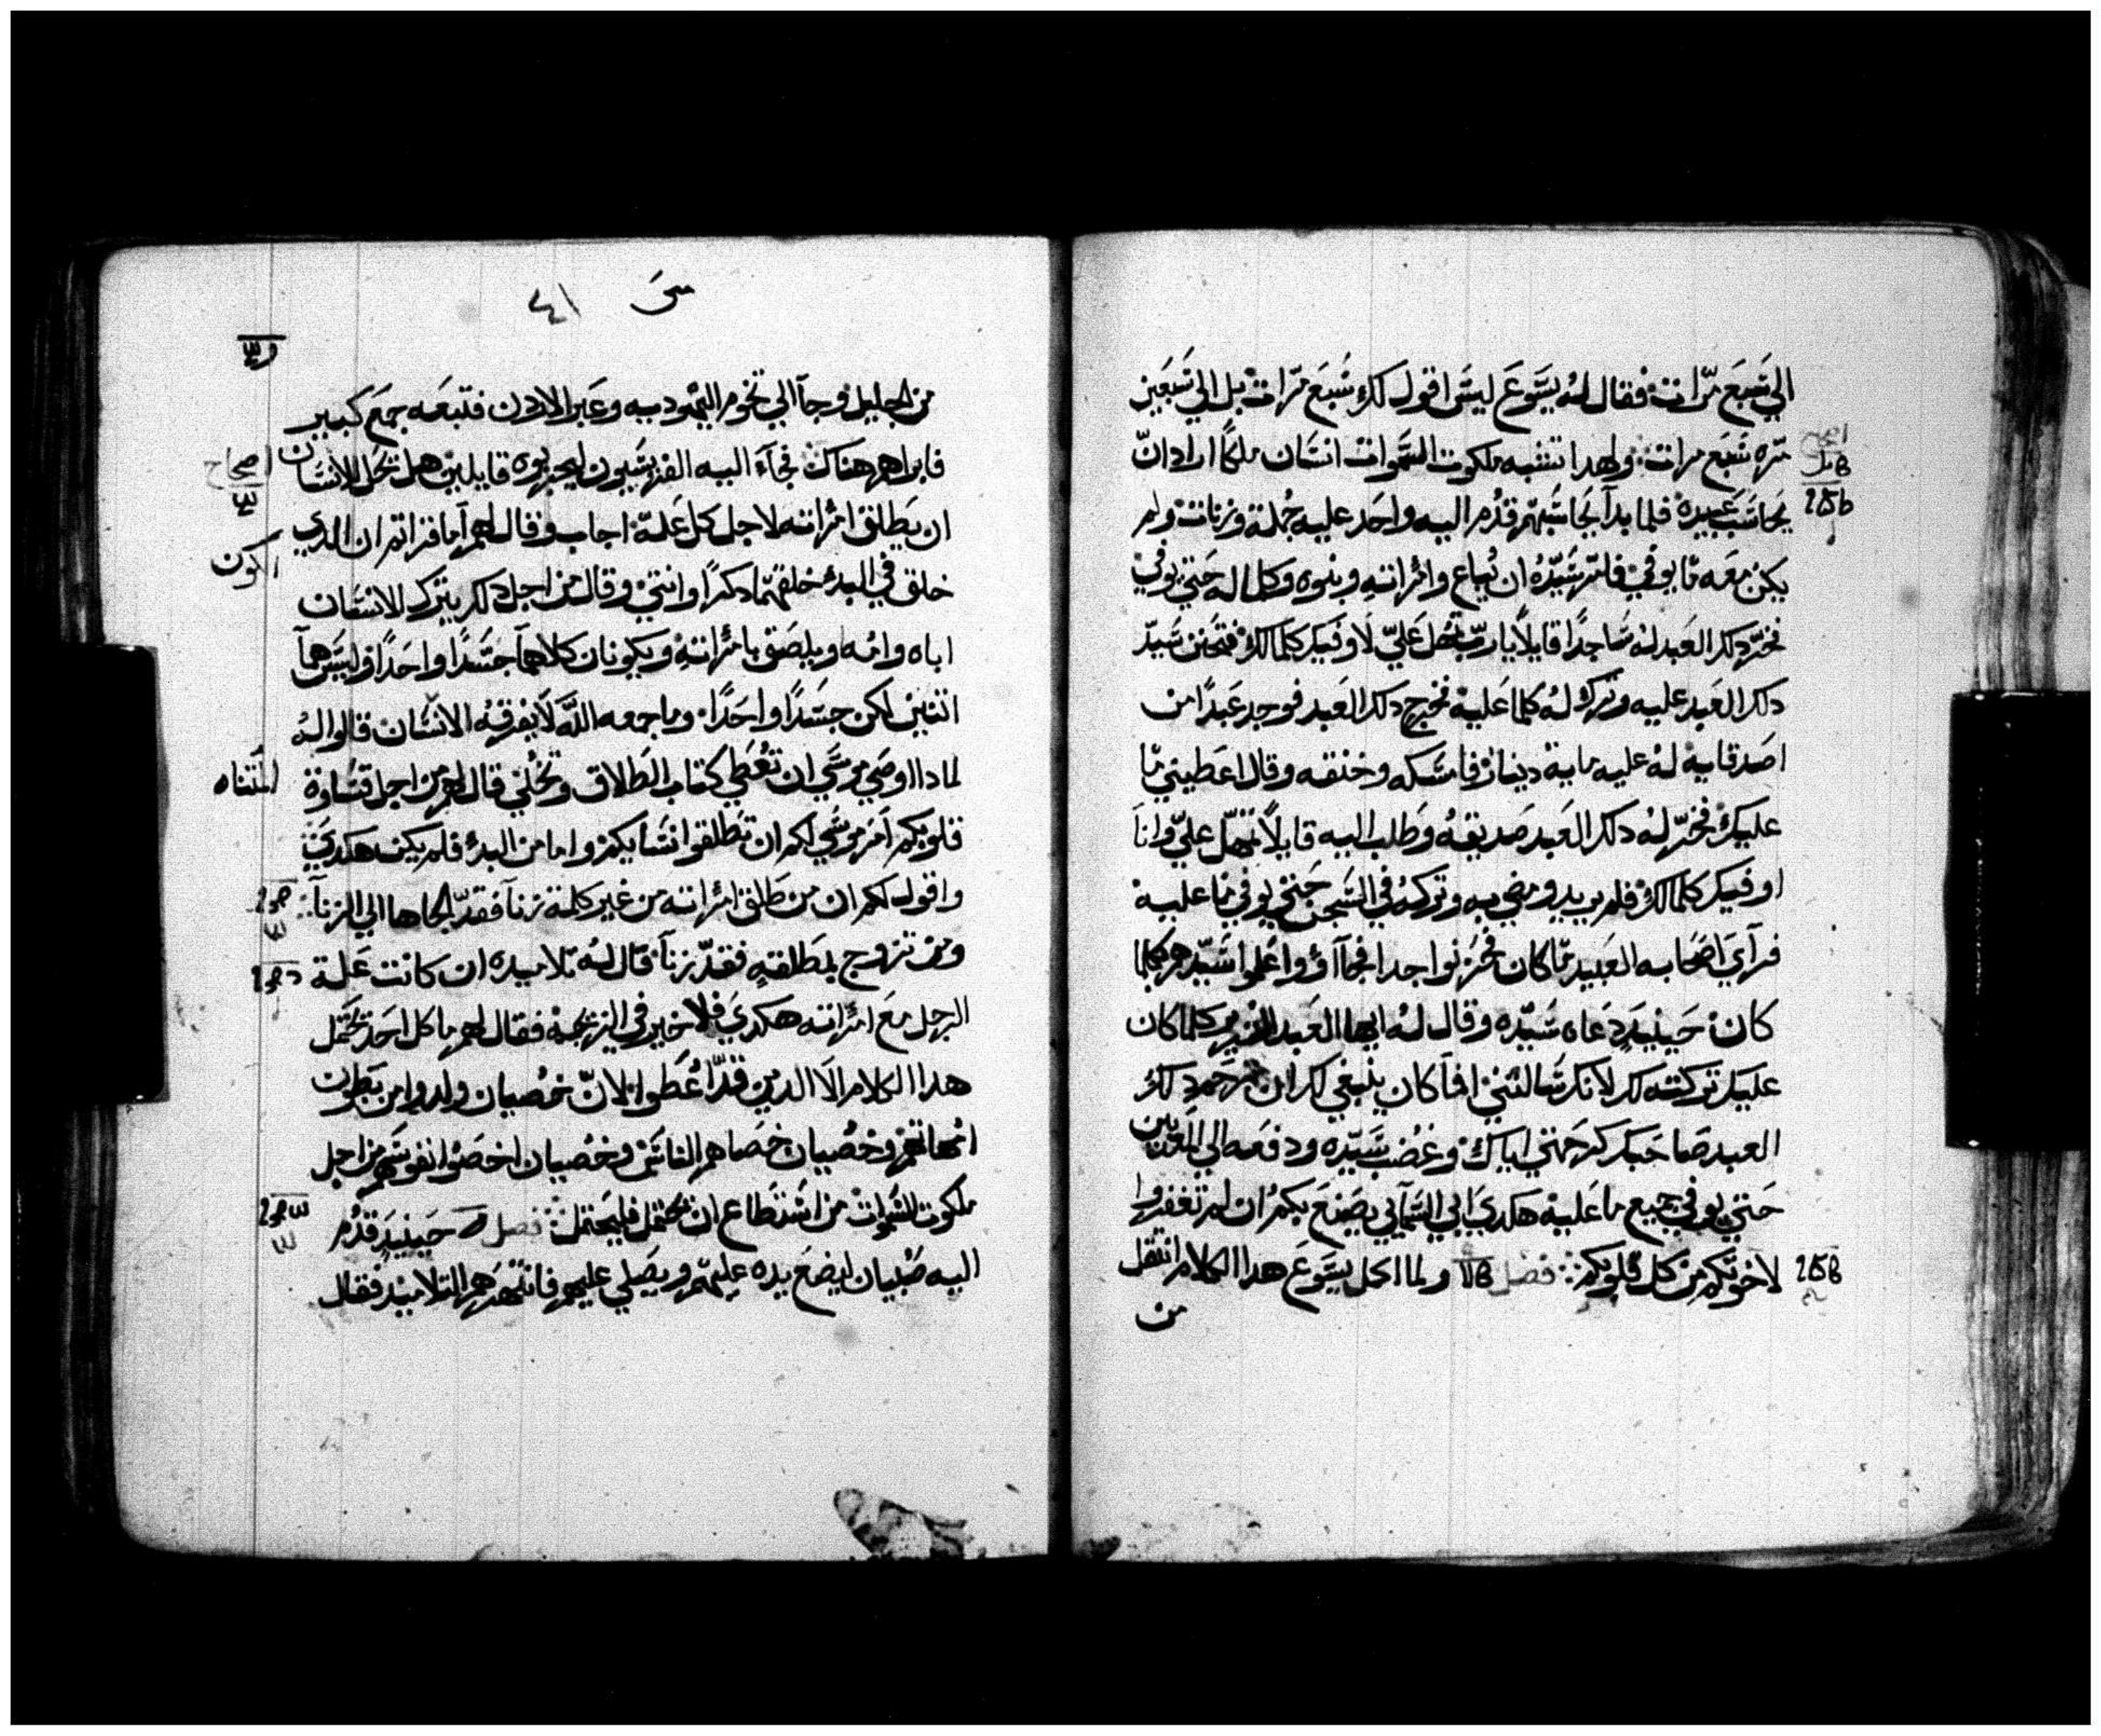 الي سَبعَ مرّات فقال لهُ يسَوعَ ليسَ اقول لك سَبعَ مرات بل الي سَبعَين
مرّه سَبع مرات ولهدا تشبه ملكوت السَموات انسَان ملكًا اراد انّ
يحَاسَب عَبيده فلما بدآ يحَاسَبهم قدُم اليه واحَد عليه جُملة وزنات ولم
يكن معَه ما يوفي فامر سَيّدُه ان يُباع وامرَاته وبنوه وكلما له حَتي يوفي
فخرّ دلك العَبد لهُ سَاجدًا قايلًا يا ربّ تمهل عَليّ لاوفيك كلما لك فتحَنن سَيد
دلك العَبد عليه وترك لهُ كلما عَليه فخرج دلك العَبد فوجد عَبدًا من
اصَدقايه لهُ عليه ماية دينار فامسَكه وخنقه وقال اعَطيني ما
عليك فخرّ لهُ دلك العَبد صَديقهُ وطَلب اليه قايلًا تمهّل عليّ وانا
اوفيك كلما لك فلم يريد ومضي به وتركهُ في السَجن حَتي يوفي ما عليه
فرآي اصَحَابه العَبيد ما كان فحَزنوا جدا فجآاؤ واعَلموا سَيّدهم بكلما
كان حَينيدٍ دعَاه سَيّده وقال لهُ ايها العَبد الشرير كلما كان
عليك تركتهُ لك لانك سَالتني افما كان ينبغي لك ان ترحَم دلك
العبد صَاحَبك كرحَمتي اياك وغضب سَيّده ودفعَه الي المعَدبين
حَتي يوفي جميع ما عَليه هكدي ابي السَمآيي يصَنعَ بكم ان لم تغفروا
لاخوتكم من كل قلوبكم فصَل ولما اكمل يسَوعَ هدا الكلام انتقل
من
متي ٤١
من الجليل وجآ الي تخوم اليهوديه وعَبر الاردن فتبعَه جمعَ كبير
فابراهم هناك فجآء اليه الفريسَيون ليجربوه قايلين هل تحَل للانسَان
اصحاح
ان يطَلق امرَاته لاجل كل عَلة اجاب وقال لهم اما قراتم ان الدي
خلق في البدء خلقهما دكرًا وانتي وقال من اجل دلك يترك الانسَان
اباه وامُه ويلصَق بامرَاته ويكونان كلاهما جسَدًا واحَدًا وليسَ همآ
اتنين لكن جسَدًا واحَدًا وما جمعه اللّه لا يفرقهُ الانسَان قالوا لهُ
لمادا اوصَي موسَي ان تعُطَي كتاب الطَلاق وتخُلي قال لهم من اجل قسَاوة
قلوبكم امَر موسَي لكم ان تطَلقوا نسَايكم واما من البدء فلم يكن هكدي
واقول لكم ان من طَلق امرَاته من غير كلمة زنآ فقد الجاها الي الزنآ
ومن تزوج بمطَلقةٍ فقد زنآ قال لهُ تلاميده ان كانت عَلة
الرجل معَ امرَاته هكدي فلا خير في الزيجه فقال لهم ما كل احَد يحَتمل
هدا الكلام الا الدين قدّ اعُطَوا لانّ خصُيان ولدوا من بطَون
امهاتهم وخصُيان خصَاهم الناسَ وخصُيان اخصَوا نفوسَهم من اجل
ملكوت السَموات من اسَتطَاع ان يحَتمل فليحَتمل فصل حَينيدٍ قدُم
اليه صَبيان ليضعَ يده عليهم ويصَلي عليهم فانتهرهم التلاميد فقال